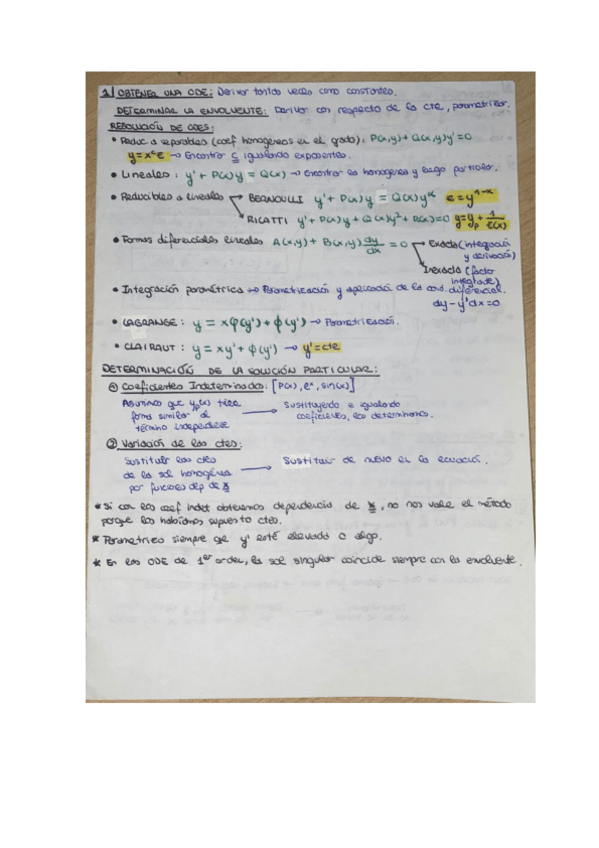 1 OBTENER UNA ODE: Derivar tantas veces como constantes.
DETERMINAR LA ENVOLVENTE: Derivar con respecto de la cte, parametrizar.
RESOLUCIÓN DE ODES:
• Reduc a separables (coef homogéneos en el grado): P(x,y) + Q(x,y)y' = 0
→ Encontrar c igualando exponentes.
• Lineales: y' + P(x)y = Q(x) → Encontrar la homogénea y luego particular.
• Reducibles a lineales → BERNOULLI y' + P(x)y = Q(x)y^α
→ RICATTI y' + P(x)y + Q(x)y² + R(x) = 0 y = y_p + 1/z(x)
• Formas diferenciales lineales A(x,y) + B(x,y) dy/dx = 0 → Exacta (integración
y derivación)
Inexacta (factor
integrante)
• Integración paramétrica → Parametrización y aplicación de la cond. diferencial.
dy - y'dx = 0
• LAGRANGE: y = xφ(y') + ϕ(y') → Parametrización.
• CLAIRAUT: y = xy' + ϕ(y') → y' = cte
DETERMINACIÓN DE LA SOLUCIÓN PARTICULAR:
① Coeficientes Indeterminados: [P(x), eˣ, sin(x)]
Asumimos que yp(x) tiene → Sustituyendo e igualando
forma similar al coeficientes, los determinamos.
término independiente
② Variación de las ctes:
Sustituir las ctes → Sustituir de nuevo en la ecuación.
de la sol homogénea
por funciones dep de x
* Si con los coef indet obtenemos dependencia de x, no nos vale el método
porque los habíamos supuesto ctes.
* Paramétrico siempre que y' esté elevado a algo.
* En las ODE de 1er orden, la sol singular coincide siempre con la envolvente.